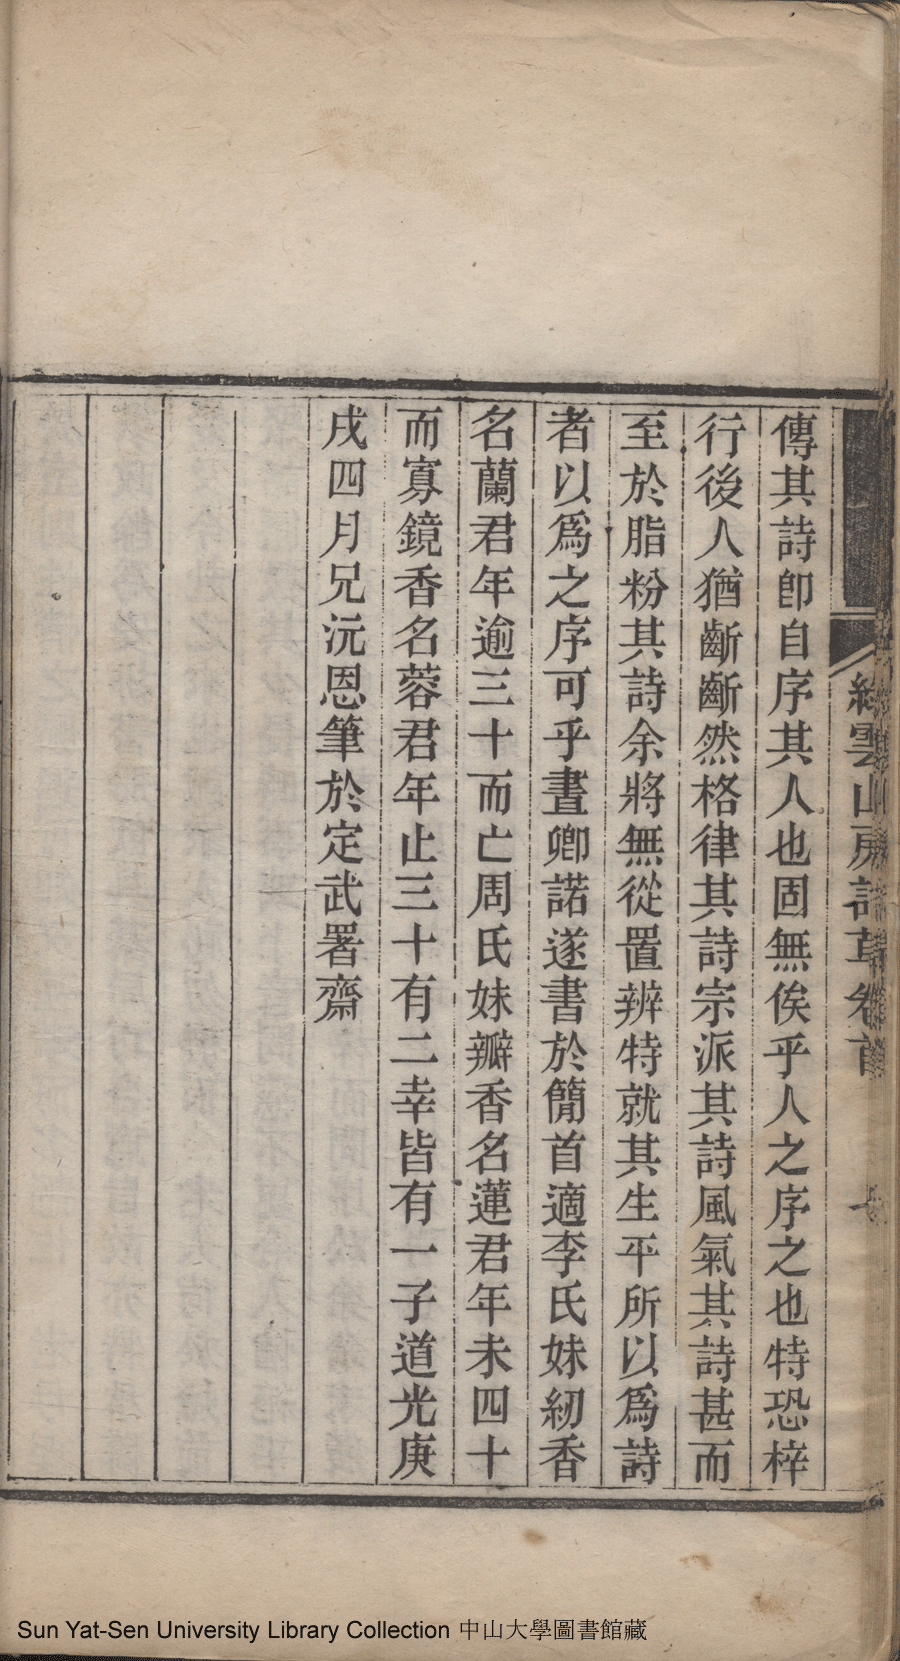 傳其詩卽自序其人也固無俟乎人之序之也特恐梓
行後人猶齗齗然格律其詩宗派其詩風氣其詩甚而
至於脂粉其詩余將無從置辨特就其生平所以爲詩
者以爲之序可乎晝卿諾遂書於簡首適李氏妹紉香
名蘭君年逾三十而亡周氏妹瓣香名蓮君年未四十
而寡鏡香名蓉君年止三十有二幸皆有一子道光庚
戌四月兄沅恩筆於定武署齋
雲山房詩草卷首
Sun Yat-Sen University Library Collection 中山大學圖書館藏